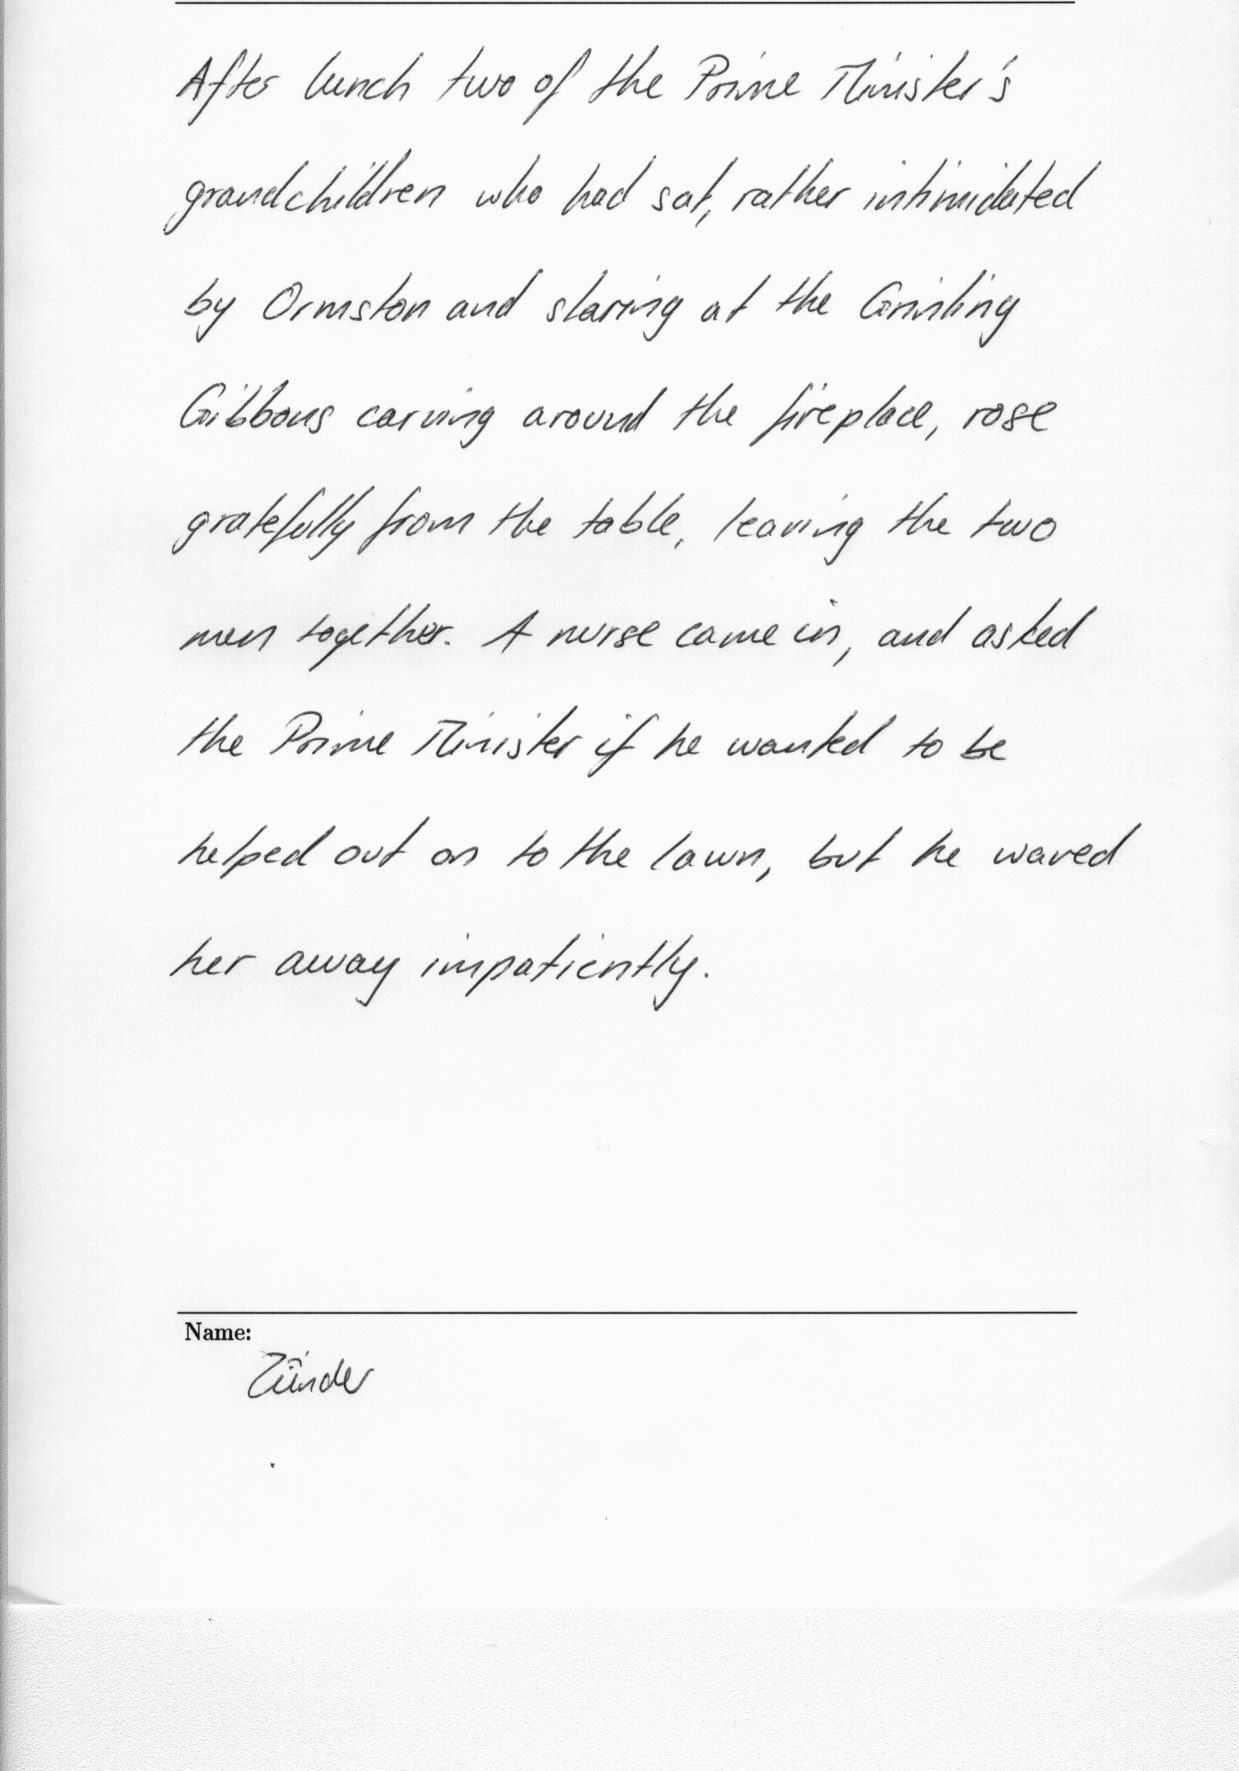 After lunch two of the Prime Minister's
grandchildren who had sat, rather intimidated
by Ormston and staring at the Grinling
Gibbons carving around the fireplace, rose
gratefully from the table, leaving the two
men together. A nurse came in, and asked
the Prime Minister if he wanted to be
helped out on to the lawn, but he waved
her away impatiently.
Name:
Zünder